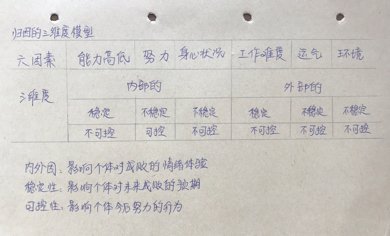 归因的三维度模型
六因素 能力高低 努力 身心状况 工作难度 运气 环境
三维度 内部的 外部的
稳定 不稳定 不稳定 稳定 不稳定 不稳定
不可控 可控 不可控 不可控 不可控 不可控
内外因：影响个体对成败的情绪体验
稳定性：影响个体对未来成败的预期
可控性：影响个体今后努力的行为